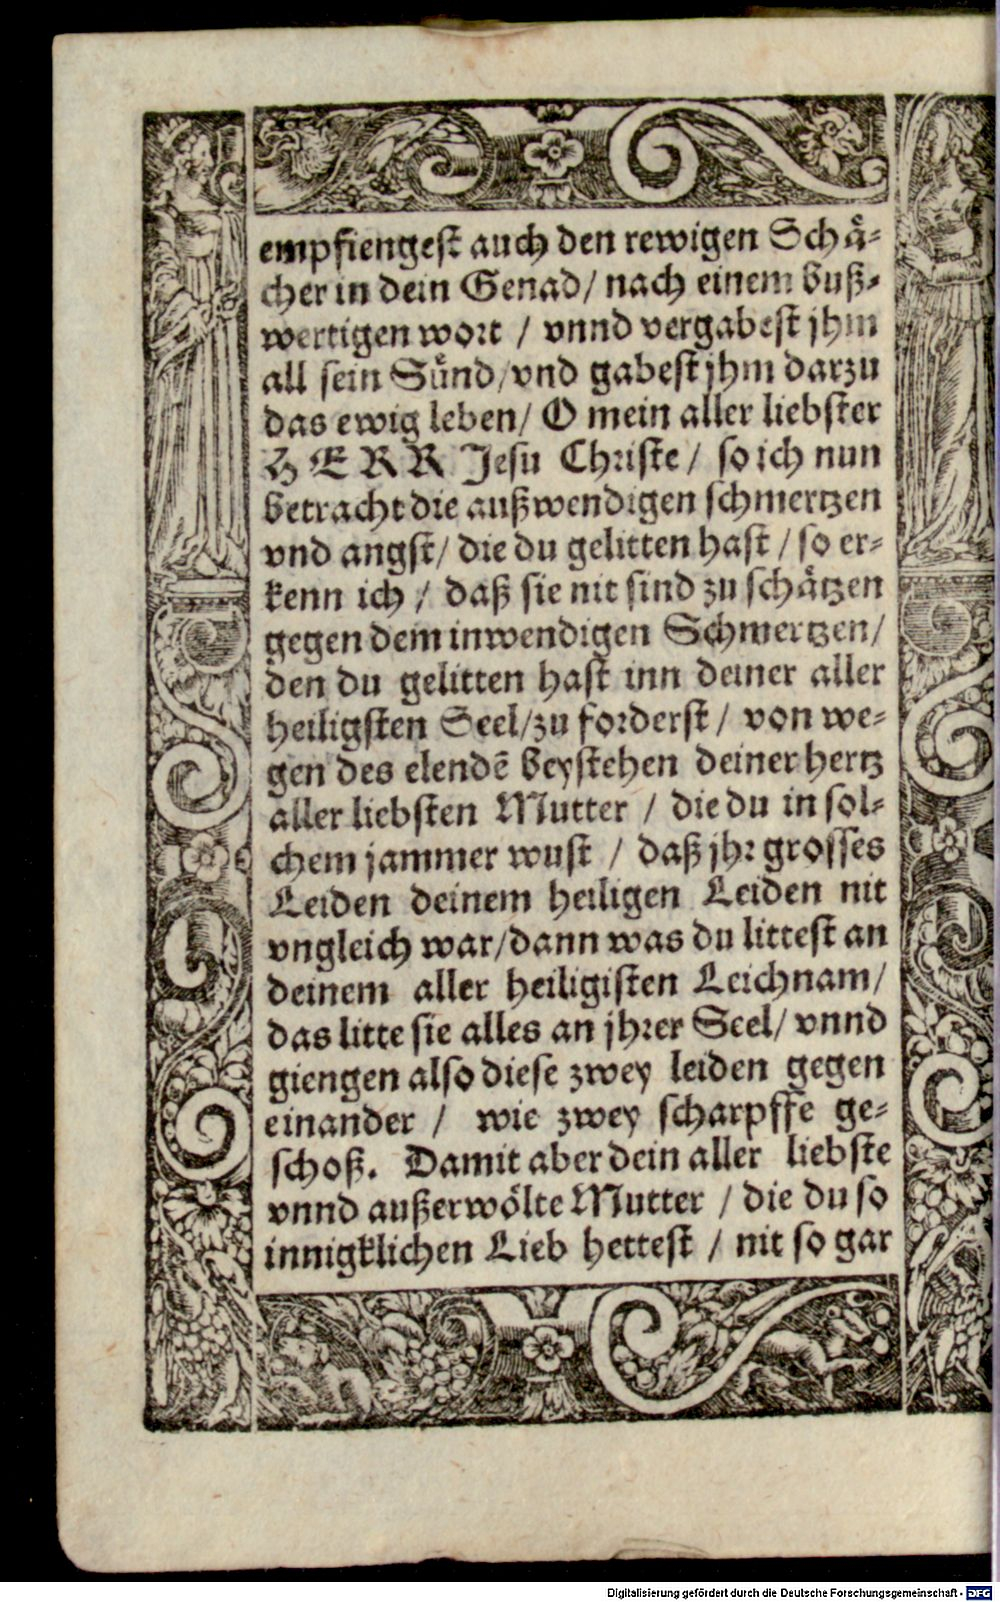 empfiengest auch den rewigen Schä-
cher in dein Genad / nach einem buß-
wertigen wort / vnnd vergabest jhm
all sein Sünd / vnd gabest jhm darzu
das ewig leben / O mein aller liebster
HERR Jesu Christe / so ich nun
betracht die außwendigen schmertzen
vnd angst / die du gelitten hast / so er-
kenn ich / daß sie nit sind zu schätzen
gegen dem inwendigen Schmertzen /
den du gelitten hast inn deiner aller
heiligsten Seel / zu forderst / von we-
gen des elendē beystehen deiner hertz
aller liebsten Mutter / die du in sol-
chem jammer wust / daß jhr grosses
Leiden deinem heiligen Leiden nit
vngleich war / dann was du littest an
deinem aller heiligisten Leichnam /
das litte sie alles an jhrer Seel / vnnd
giengen also diese zwey leiden gegen
einander / wie zwey scharpffe ge-
schoß. Damit aber dein aller liebste
vnnd außerwölte Mutter / die du so
innigklichen Lieb hettest / nit so gar
Digitalisierung gefördert durch die Deutsche Forschungsgemeinschaft - DFG